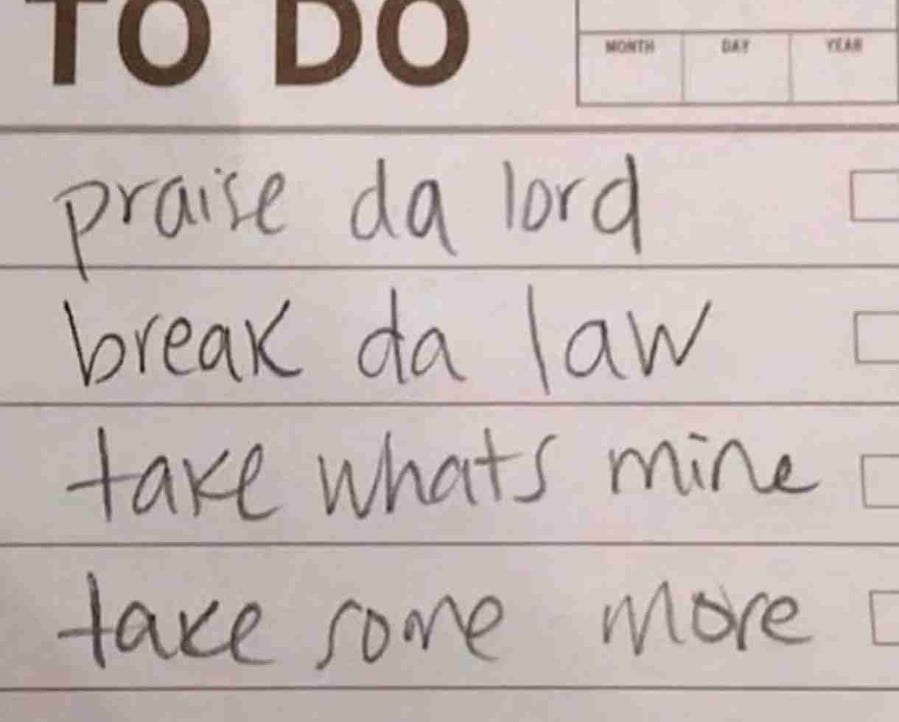 TO DO
MONTH DAY YEAR
praise da lord
break da law
take whats mine
take some more